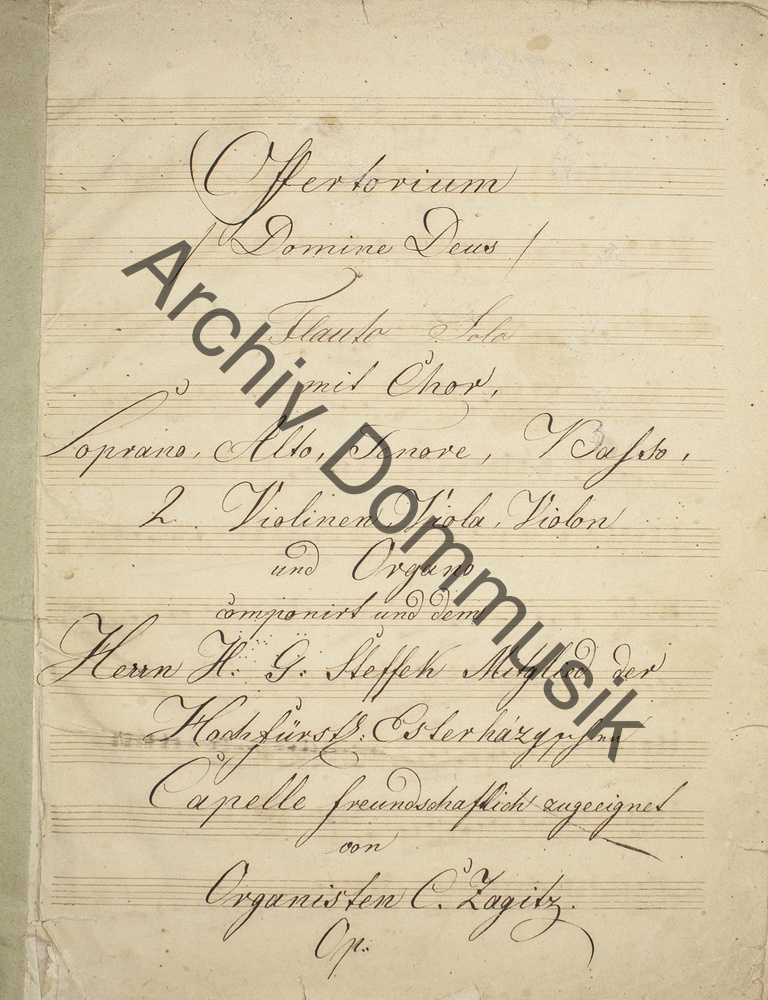 Offertorium
/ Domine Deus /
Flauto Solo
mit Chor,
Soprano, Alto, Tenore, Basso,
2 Violinen, Viola, Violon
und Organo
componirt und dem
Herrn H: G: Steffek Mitglied der
Hochfürstl: Esterházyschen
Capelle freundschaftlich zugeeignet
von
Organisten C. Zagitz.
Op:
Archiv Dommusik